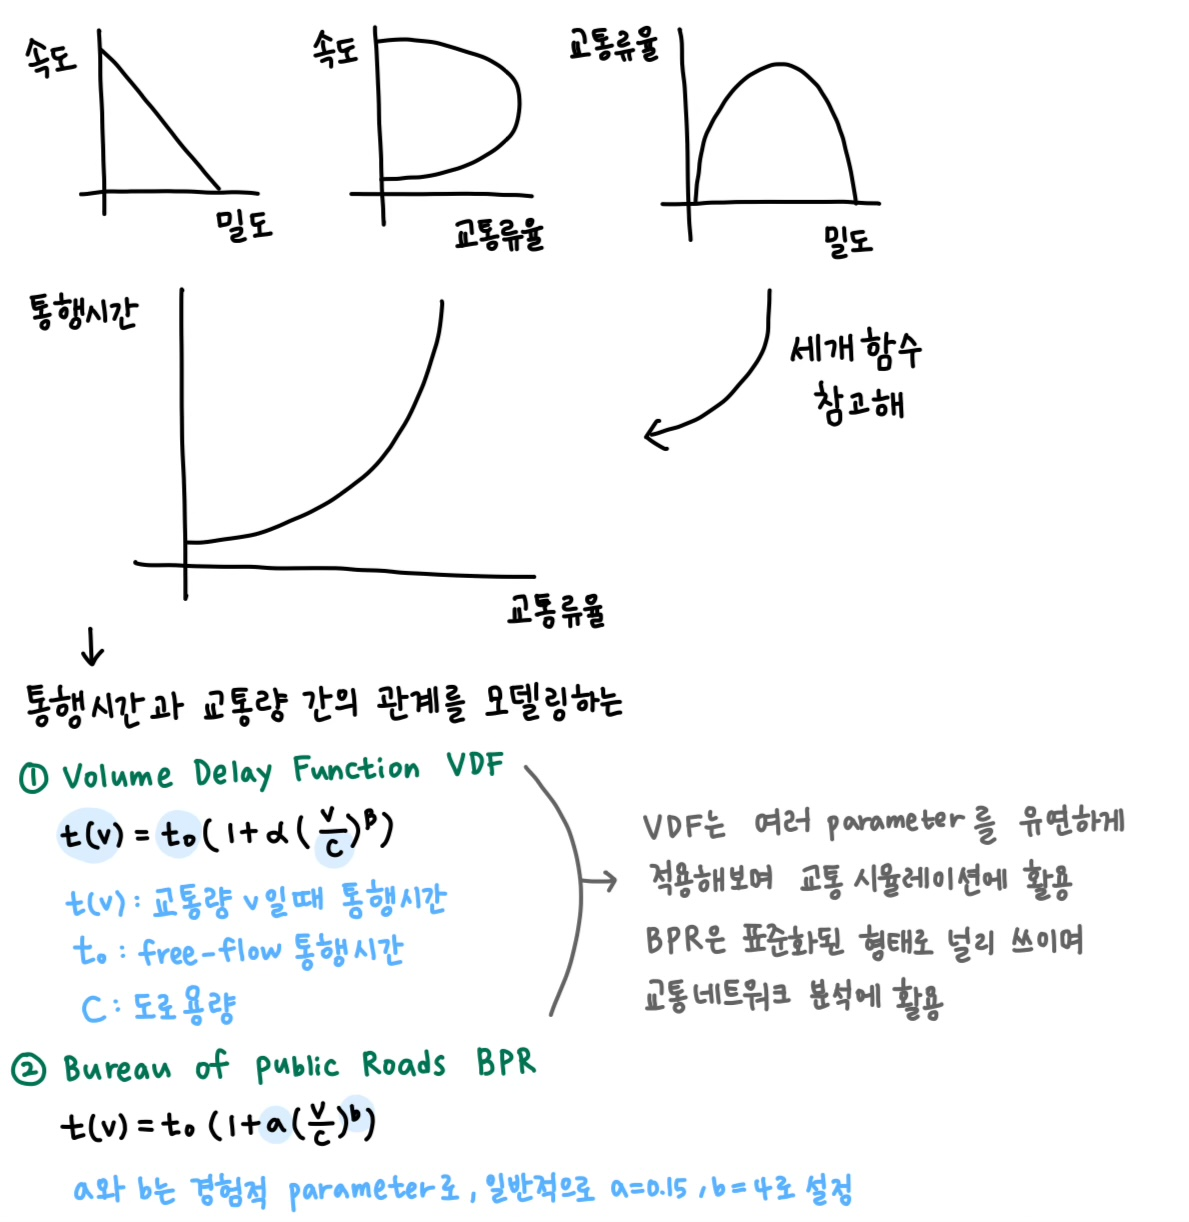 속도
밀도
속도
교통류율
교통류율
밀도
통행시간
교통류율
세개 함수
참고해
통행시간과 교통량 간의 관계를 모델링하는
① Volume Delay Function VDF
t(v) = t₀(1+α(v/c)^β)
t(v) : 교통량 v일때 통행시간
t₀ : free-flow 통행시간
C : 도로용량
VDF는 여러 parameter를 유연하게
적용해보며 교통 시뮬레이션에 활용
BPR은 표준화된 형태로 널리 쓰이며
교통네트워크 분석에 활용
② Bureau of public Roads BPR
t(v) = t₀ (1+a(v/c)^b)
a와 b는 경험적 parameter로, 일반적으로 a=0.15, b=4로 설정